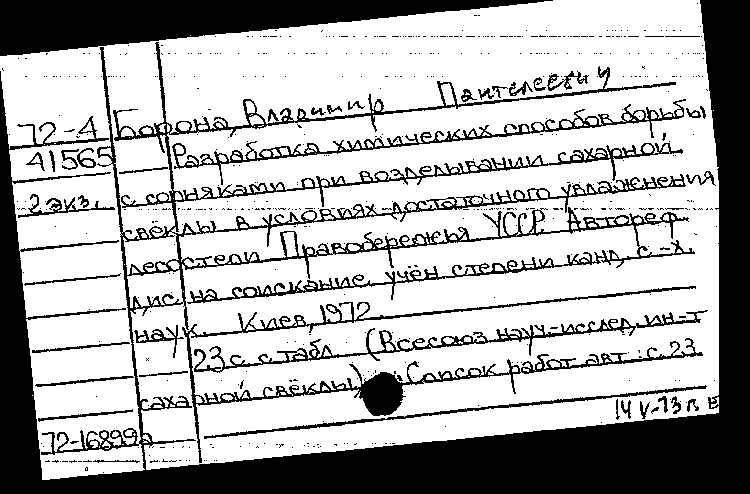 72-4 Борона, Владимир Пантелеевич
41565 Разработка химических способов борьбы
2 экз. с сорняками при возделывании сахарной
свёклы в условиях достаточного увлажнения
лесостепи Правобережья УССР. Автореф.
дис. на соискание учён степени канд. с.-х.
наук. Киев, 1972.
23 с. с табл. (Всесоюз науч.-исслед. ин-т
сахарной свёклы). Список работ авт.: с. 23
14 V-73 п Е
72-16899а